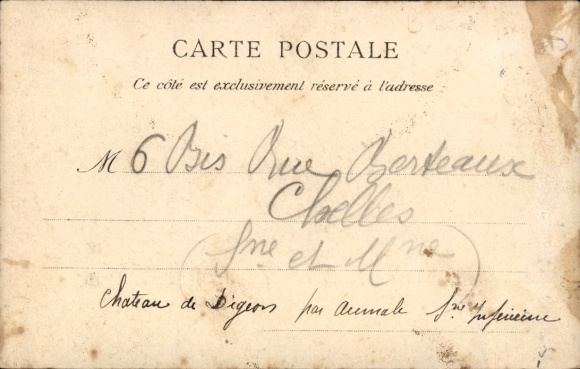 CARTE POSTALE
Ce côté est exclusivement réservé à l'adresse
M 6 Bis Rue Berteaux
Chelles
(Sne et Mne)
Chateau de Digeon par Aumale Sne Inférieure